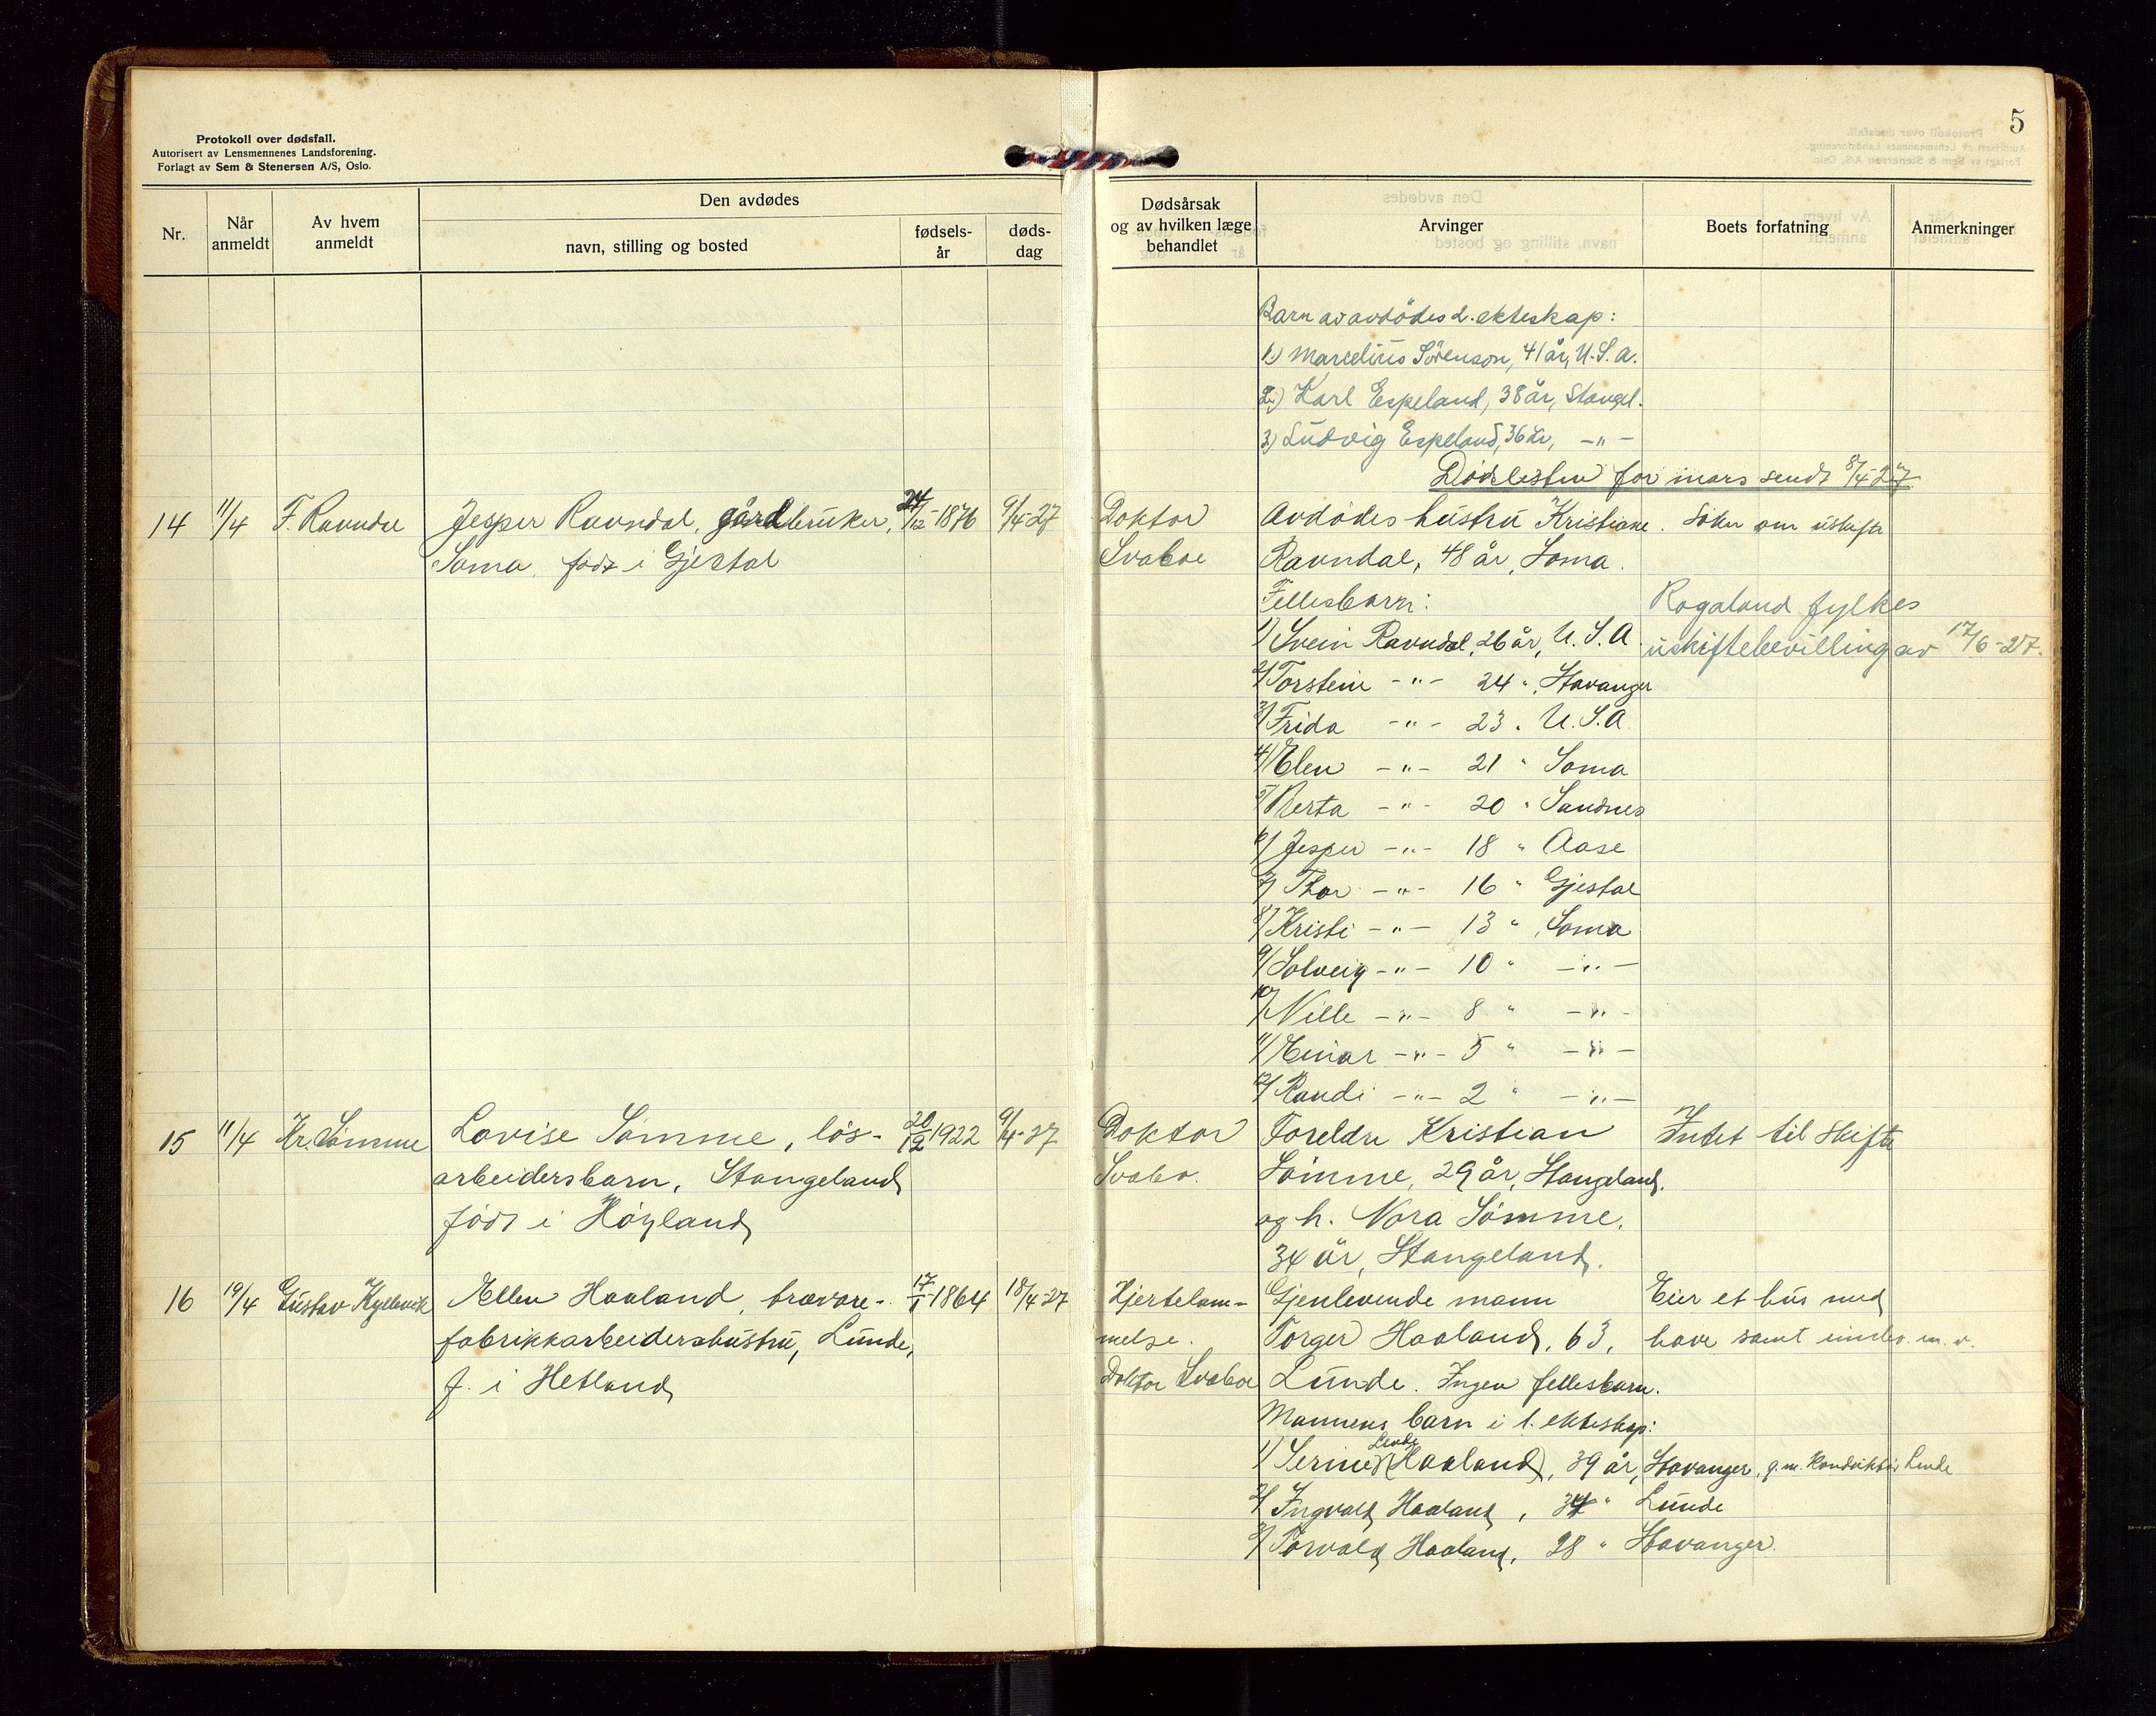 Protokoll over dødsfall.
Autorisert av Lensmennenes Landsforening.
Forlagt av Sem & Stenersen A/S, Oslo.
5
Nr.
Når anmeldt
Av hvem anmeldt
Den avdødes
navn, stilling og bosted
fødselsår
dødsdag
Dødsårsak
og av hvilken læge
behandlet
Arvinger
Boets forfatning
Anmerkninger
Barn av avdödes 2. ekteskap:
1.) Marcelius Sörenson, 41 år, U.S.A.
2.) Karl Espeland, 38 år, Stangel.
3.) Ludvig Espeland, 36 år, -"-
Dödslisten for mars sendt 8/4-27
14 11/4 F. Ravndal Jesper Ravndal, gårdbruker, 24/12-1876 9/4-27
Soma, födt i Gjestal
Doktor
Svaboe
Avdödes hustru Kristiane. Söker om uskifte
Ravndal, 48 år, Soma.
Fellesbarn:
Rogaland fylkes
uskiftebevilling av 17/6-27.
1/ Svein Ravndal, 26 år, U.S.A.
2/ Torstein -"- 24 ", Stavanger
3/ Frida -"- 23 " U.S.A
4/ Elen -"- 21 " Soma
5/ Berta -"- 20 " Sandnes
6/ Jesper -"- 18 " Aase
7/ Thor -"- 16 " Gjestal
8/ Kristi -"- 13 " Soma
9/ Solveig -"- 10 " -"-
10/ Nille -"- 8 " -"-
11/ Einar -"- 5 " -"-
12/ Randi -"- 2 " -"-
15 11/4 Kr. Sömme Lovise Sömme, lös- 20/12 1922 9/4-27
arbeidersbarn, Stangeland
födt i Höyland
Doktor
Svabo.
Foreldre Kristian
Sömme, 29 år, Stangeland.
og h. Nora Sömme,
34 år, Stangeland.
Intet til skifte
16 19/4 Gustav Kyllevik Ellen Haaland, trævare- 17/1-1864 18/4-27
fabrikkarbeidershustru, Lunde,
f. i Hetland
Hjertelam-
melse.
Doktor Svaboe
Gjenlevende mann
Torger Haaland, 63,
Lunde. Ingen fellesbarn.
Mannens barn i 1. ekteskap:
Eier et hus med
have samt innbo m. v.
Lende
1/ Serine (Haaland), 39 år, Stavanger, g. m. Konduktör Lende
2/ Ingvald Haaland, 34 " Lunde
3/ Torvald Haaland, 28 " Stavanger.